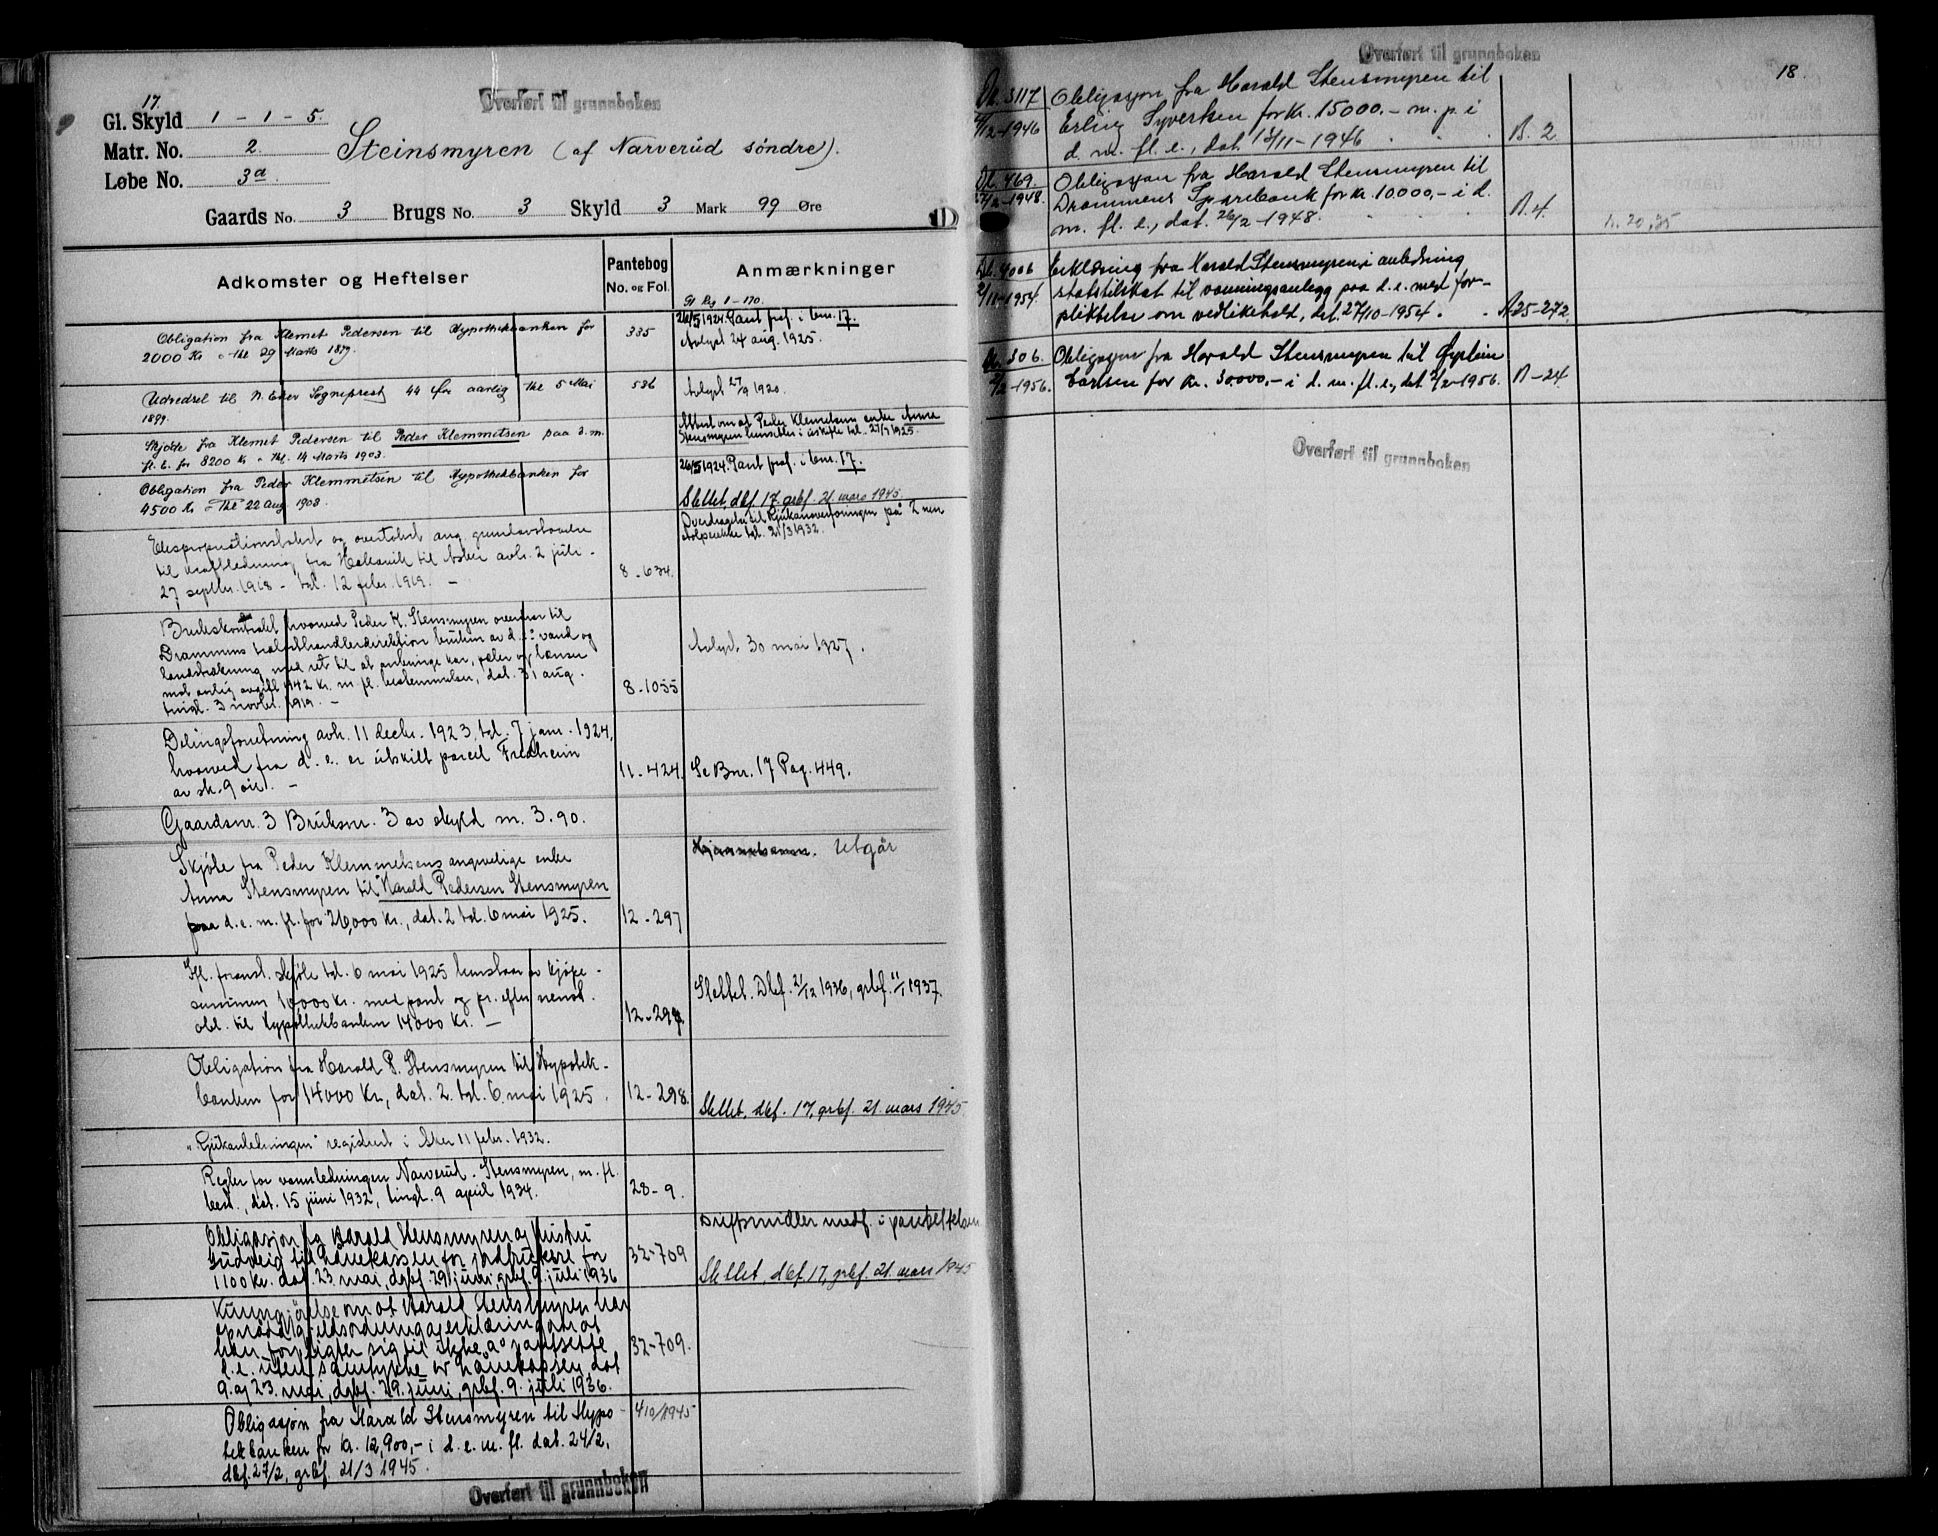 17.
Overført til grunnboken
Gl. Skyld 1 - 1 - 5.
Matr. No. 2. Steinsmyren (af Narverud söndre).
Løbe No. 3a
Gaards No. 3 Brugs No. 3 Skyld 3 Mark 99 Øre
Adkomster og Heftelser
Pantebog
No. og Fol.
Anmærkninger
Gl Reg 1-170.
Obligation fra Klemet Pedersen til Hypothekbanken for
2000 Kr - thl 29 Marts 1879.
335
26/5 1924. Pant prf. i bnr. 17.
Avlyst 24 aug. 1925.
Udredsel til N. Eker Sogneprest 44 Øre aarlig thl 5 Mai
1899.
536
Avlyst 27/9 1920.
Skjøde fra Klemet Pedersen til Peder Klemmetsen paa d. m.
fl. E. for 8200 Kr - thl. 14 Marts 1903.
Attest om at Peder Klemetsens enke Anna
Stensmyren hensitter i uskifte tel. 27/4 1925.
Obligation fra Peder Klemmetsen til Hypothekbanken for
4500 Kr - Thl 22 Aug 1903.
26/5 1924. Pant prf. i bnr. 17.
Slettet, dbf. 17, grbf. 21. mars 1945.
Ekspropriationstakst og overtakst ang. grundavstaaelse
til kraftledning fra Hakavik til Asker avh. 2 juli -
27 septbr. 1918 - tgl. 12 febr. 1919. -
8-634.
Overdragelse til Rjukanoverføringen på 2 nen
stolperekke tgl. 21/3 1932.
Brukskontrakt hvorved Peder K. Stensmyren overdrar til
Drammens trælasthandlerdirektion bruken av d. e.s vand og
landstrækning med ret til at anbringe kar, pæler og lænser
mot aarlig avgift 142 Kr. m. fl. bestemmelser, dat. 31 aug.
tingl. 3 novbr. 1919. -
8-1055
Avlyst 30 mai 1927.
Delingsforretning avh. 11 decbr. 1923, tgl. 7 jan. 1924,
hvorved fra d. e. er utskilt parcel Fredheim
av sk. 9 øre. -
11-424.
Se Bnr. 17 Pag. 449.
Gaardsnr. 3 Bruksnr. 3 av skyld m. 3.90.
Skjøte fra Peder Klemmetsens angivelige enke
Anna Stensmyren til Harald Pedersen Stensmyren
paa d. e. m. fl. for 26,000 Kr., dat. 2 tgl. 6 mai 1925.
12-297
Utgår
Ifl. foranst. skjöte tgl. 6 mai 1925 henstaar av kjøpe-
summen 10,000 Kr. med pant og pr. efter nevnt
obl. til Hypothekbanken 14000 Kr. -
12-297.
Slettet. Dbf. 21/12 1936, grbf. 11/1 1937.
Obligation fra Harald P. Stensmyren til Hypotek-
banken for 14000 Kr, dat. 2. tgl. 6. mai 1925.
12-298.
Slettet, dbf. 17, grbf. 21. mars 1945.
"Rjukanledningen" registrert i Eker 11 febr. 1932.
Regler for vannledningen Narverud - Stensmyren, m. fl.
best., dat. 15 juni 1932, tingl. 9 april 1934.
28-9.
Obligasjon fra Harald Stensmyren og hustru
Gudveig til Lånekassen for jordbrukere for
1100 Kr. dat. 23 mai, dgbf. 29 juni, grbf. 9. juli 1936
32-709
Driftsmidler medf. i panteheftelsen
Slettet, dbf. 17, grbf. 21. mars 1945
Kunngjørelse om at Harald Stensmyren har
opnådd gjeldsordning og erklæring om at
han forpligter sig til ikke å pantsette
d. e. uten samtykke av Lånekassen dat
9. og 23. mai, dgbf. 29. juni, grbf. 9. juli 1936.
32-709.
Obligasjon fra Harald Stensmyren til Hypo-
tekbanken for kr. 12,900,- i d. e. m. fl. dat. 24/2,
dbf. 27/2, grbf. 21/3 1945.
410/1945
Overført til grunnboken
Overført til grunnboken
18.
Db. 3117
/12-1946
Obligasjon fra Harald Stensmyren til
Erling Syversen for kr. 15000.- m. p. i
d. m. fl. e., dat. 15/11-1946
B. 2
Db. 469.
27/2-1948.
Obligasjon fra Harald Stensmyren til
Drammens Sparebank for kr. 10000,- i d.
m. fl. e., dat. 26/2-1948.
B. 4.
Db. 4006
2/11-1954.
Erklæring fra Harald Stensmyren i anledning
statstilskot til vanningsanlegg paa d. e. med for-
pliktelse om vedlikehold, dat. 27/10-1954.
A 25-272.
Db. 306.
2/2-1956.
Obligasjon fra Harald Stensmyren til Øystein
Carlsen for kr. 30.000,- i d. m. fl. e., dat. 2/2-1956.
B-24.
Overført til grunnboken